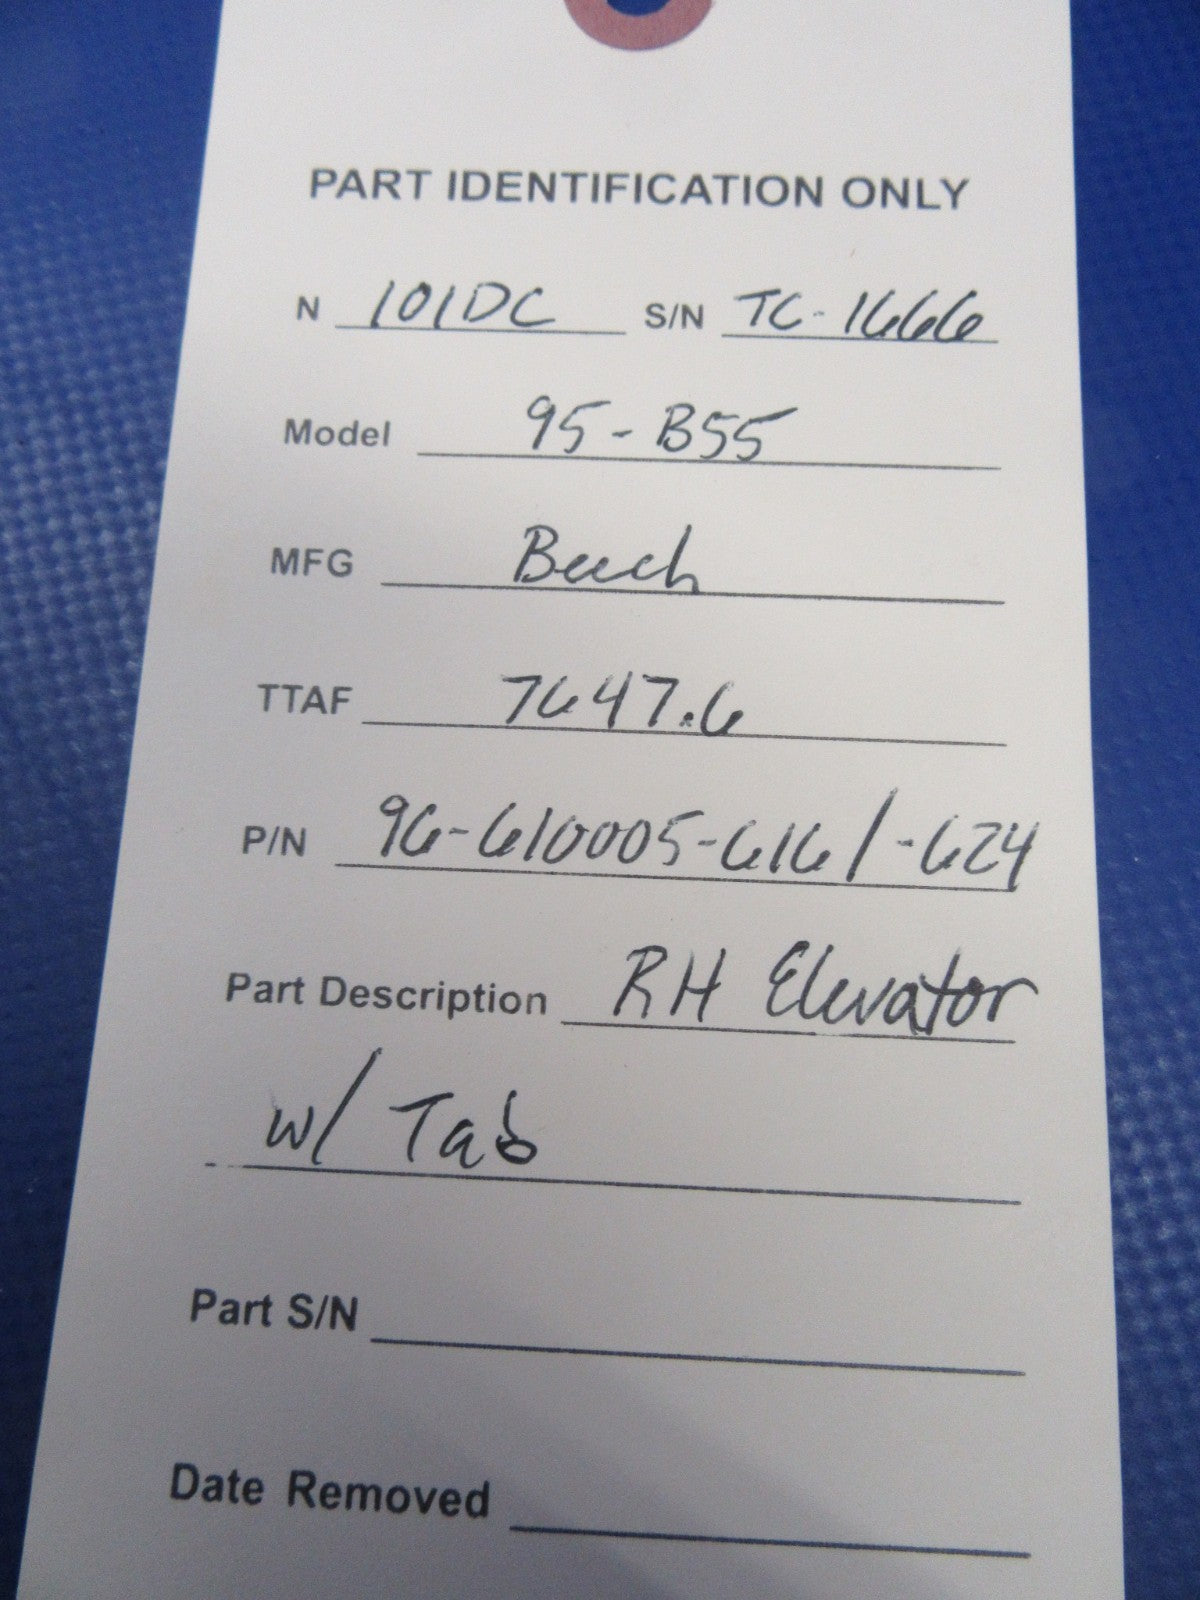 PART IDENTIFICATION ONLY
N 101DC S/N TC-1666
Model 95-B55
MFG Beech
TTAF 7647.6
P/N 96-610005-616/-624
Part Description RH Elevator
w/ Tab
Part S/N
Date Removed